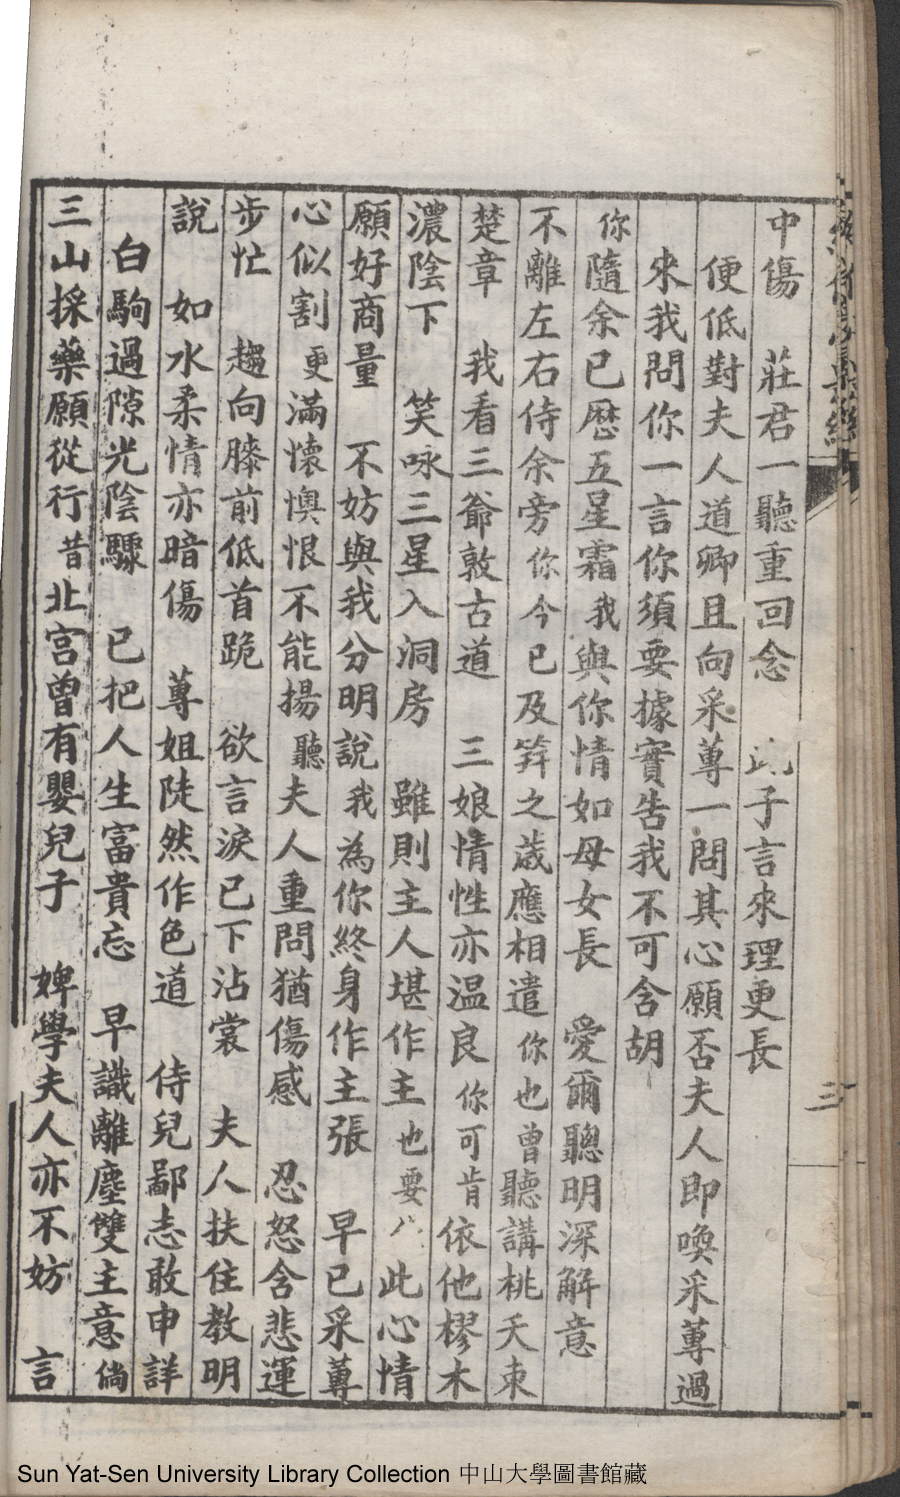 中傷　莊君一聽重回念　此子言來理更長
便低對夫人道卿且向采蓴一問其心願否夫人即喚采蓴過
來我問你一言你須要據實告我不可含胡
你隨余已歷五星霜我與你情如母女長　愛爾聰明深解意
不離左右侍余旁你今已及笄之歲應相遣你也曾聽講桃夭朿
楚章　我看三爺敦古道　三娘情性亦温良你可肯依他樛木
濃陰下　笑咏三星入洞房　雖則主人堪作主也要　此心情
願好商量　不妨與我分明說我為你終身作主張　早已采蓴
心似割更滿懷懊恨不能揚聽夫人重問猶傷感　忍怒含悲運
步忙　趨向膝前低首跪　欲言淚已下沾裳　夫人扶住教明
說　如水柔情亦暗傷　蓴姐陡然作色道　侍兒鄙志敢申詳
白駒過隙光陰驟　已把人生富貴忘　早識離塵雙主意倘
三山採藥願從行昔北宮曾有嬰兒子　婢學夫人亦不妨　言
三
Sun Yat-Sen University Library Collection 中山大學圖書館藏